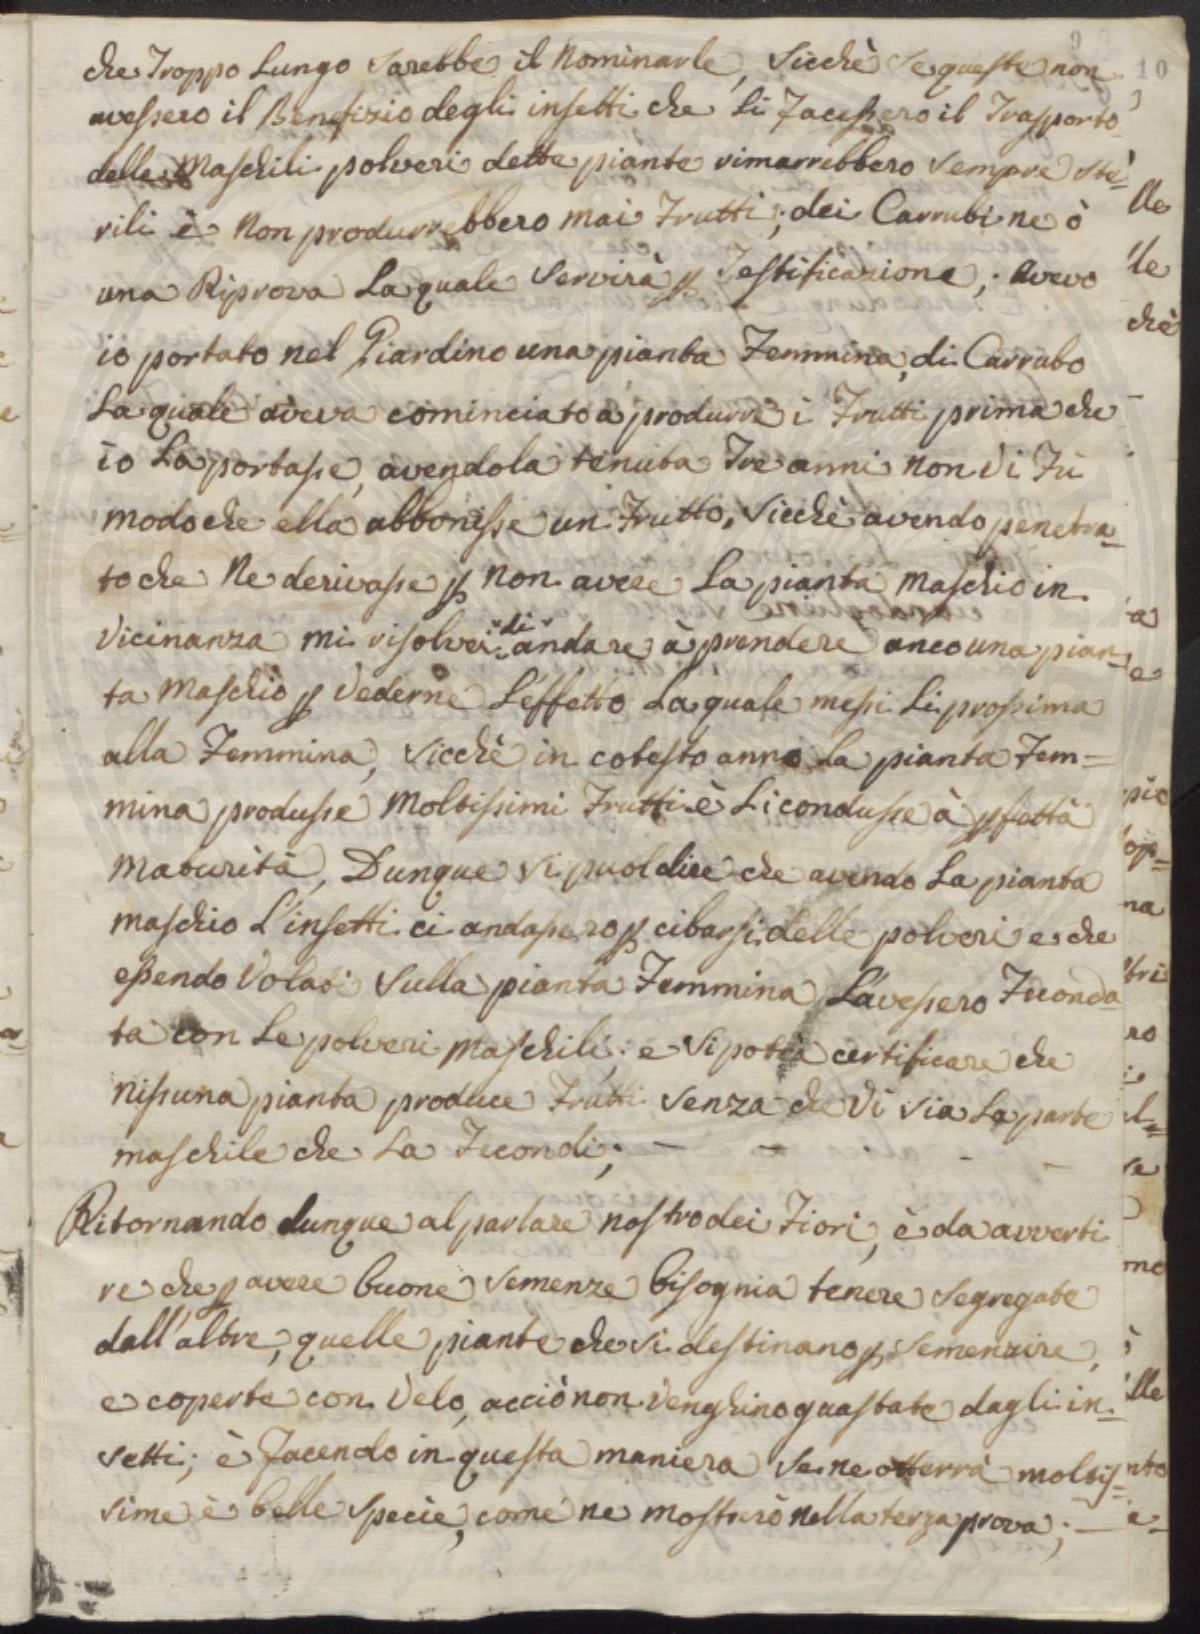 9
10
che Troppo Lungo sarebbe il Nominarle, sicchè se queste non
avessero il Benefizio degli insetti che Li Facessero il Trasporto
delle Maschili polveri dette piante rimarrebbero sempre ste=
rili è Non produrrebbero mai Frutti; dei Carrubi ne ò
una Riprova La quale Servirà p Testificazione; avevo
io portato nel Giardino una pianta Femmina, di Carrubo
La quale aveva cominciato a produrre i Frutti prima che
io La portasse, avendola tenuta Tre anni Non Vi Fù
modo che ella abbonisse un Frutto, Sicchè avendo penetra=
to che Ne derivasse p non avere La pianta Maschio in
Vicinanza mi risolvei di andare à prendere anco una pian=
ta Maschio p Vederne L'effetto La quale messi Li prossima
alla Femmina, Sicchè in cotesto anno La pianta Fem=
mina produsse Moltissimi Frutti è Li condusse à pfetta
Maturità, Dunque si puol dire che avendo La pianta
maschio L'insetti ci andassero p cibarsi delle polveri e che
essendo Volati Sulla pianta Femmina L'avessero Feconda
ta con Le polveri Maschili; e Si potrà certificare che
nissuna pianta produce Frutti senza che Vi Sia La parte
maschile che La Fecondi;
Ritornando dunque al parlare nostro dei Fiori, è da avverti
re che p avere buone Semenze bisognia tenere segregate
dall'altre, quelle piante che si destinano p Semenzire,
e coperte con Velo, acciò non Venghino guastate dagli in=
setti; è Facendo in questa maniera se ne otterrà moltis=
sime è belle Specie, come ne mosterò nella terza prova;